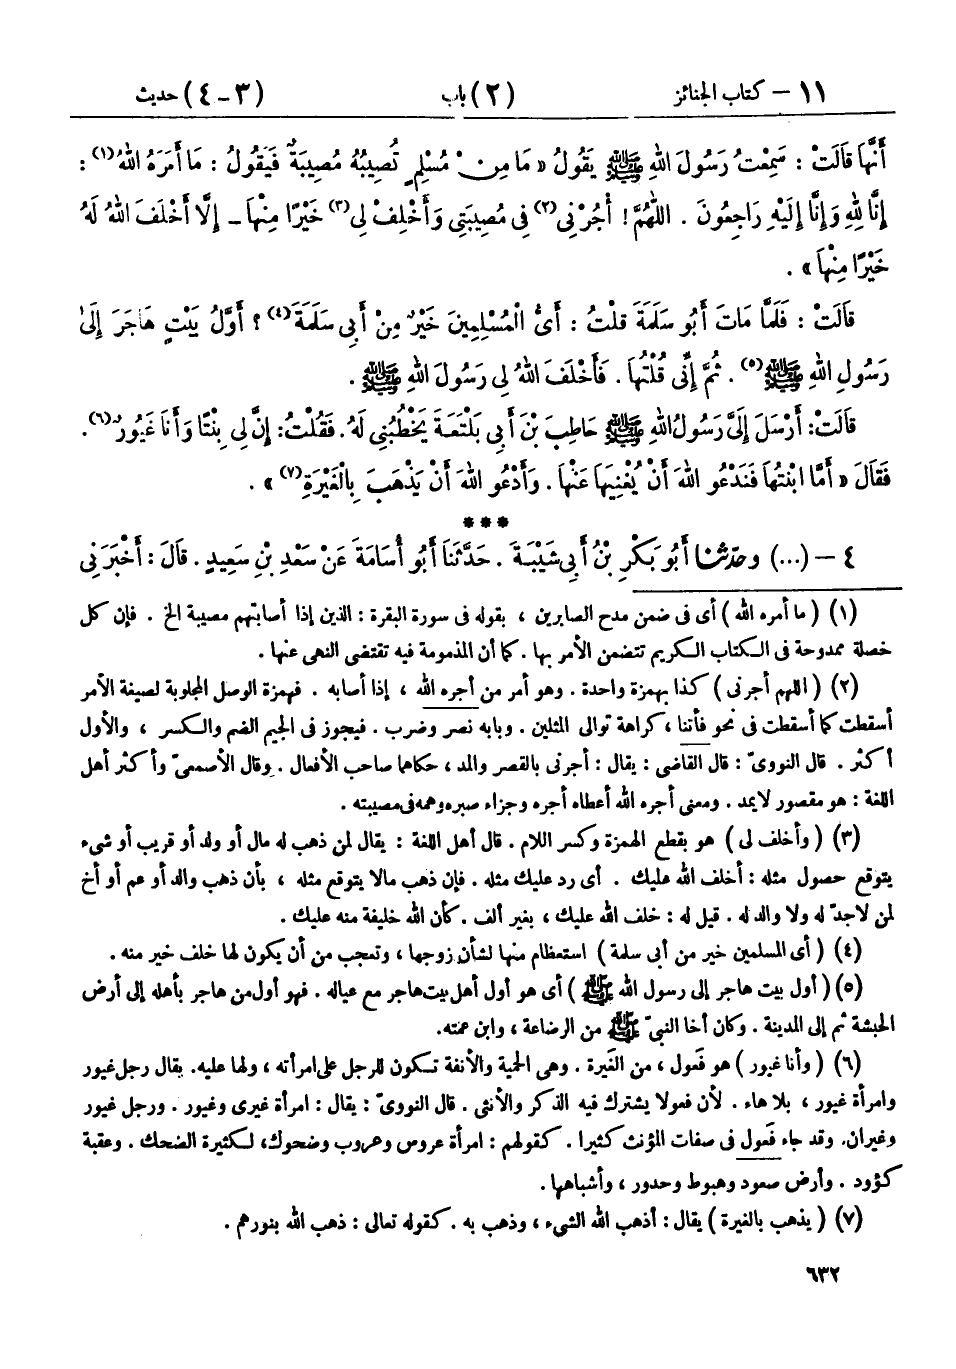 ١١ – كتاب الجنائز (٢) باب (٣ - ٤) حديث
أَنَّهَا قَالَتْ : سَمِعْتُ رَسُولَ اللهِ ﷺ يَقُولُ « مَا مِنْ مُسْلِمٍ تُصِيبُهُ مُصِيبَةٌ فَيَقُولُ : مَا أَمَرَهُ اللهُ(١) :
إِنَّا لِلهِ وَإِنَّا إِلَيْهِ رَاجِعُونَ . اللَّهُمَّ ! أْجُرْنِي(٢) فِي مُصِيبَتِي وَأَخْلِفْ لِي(٣) خَيْرًا مِنْهَا – إِلَّا أَخْلَفَ اللهُ لَهُ
خَيْرًا مِنْهَا » .
قَالَتْ : فَلَمَّا مَاتَ أَبُو سَلَمَةَ قُلْتُ : أَىُّ الْمُسْلِمِينَ خَيْرٌ مِنْ أَبِي سَلَمَةَ(٤) ؟ أَوَّلُ بَيْتٍ هَاجَرَ إِلَىٰ
رَسُولِ اللهِ ﷺ(٥) . ثُمَّ إِنِّى قُلْتُهَا . فَأَخْلَفَ اللهُ لِي رَسُولَ اللهِ ﷺ .
قَالَتْ: أَرْسَلَ إِلَىَّ رَسُولُ اللهِ ﷺ حَاطِبَ بْنَ أَبِي بَلْتَعَةَ يَخْطُبُنِي لَهُ. فَقُلْتُ: إِنَّ لِي بِنْتًا وَأَنَا غَيُورٌ(٦).
فَقَالَ « أَمَّا ابْنَتُهَا فَنَدْعُو اللهَ أَنْ يُغْنِيَهَا عَنْهَا . وَأَدْعُو اللهَ أَنْ يَذْهَبَ بِالْغَيْرَةِ(٧) » .
***
٤ – (...) وحدّثنا أَبُو بَكْرِ بْنُ أَبِي شَيْبَةَ . حَدَّثَنَا أَبُو أُسَامَةَ عَنْ سَعْدِ بْنِ سَعِيدٍ . قَالَ : أَخْبَرَنِي
(١) ( ما أمره الله ) أى فى ضمن مدح الصابرين ، بقوله فى سورة البقرة : الذين إذا أصابتهم مصيبة الخ . فإن كل
خصلة ممدوحة فى الكتاب الكريم تتضمن الأمر بها . كما أن المذمومة فيه تقتضى النهى عنها .
(٢) ( اللهم أجرنى ) كذا بهمزة واحدة . وهو أمر من أجره الله ، إذا أصابه . فهمزة الوصل المجلوبة لصيغة الأمر
أسقطت كما أسقطت فى نحو فأتنا ، كراهة توالى المثلين . وبابه نصر وضرب . فيجوز فى الجيم الضم والكسر ، والأول
أكثر . قال النووىّ : قال القاضى : يقال : أجرنى بالقصر والمد ، حكاهما صاحب الأفعال . وقال الأصمعىّ وأكثر أهل
اللغة : هو مقصور لايمد . ومعنى أجره الله أعطاه أجره وجزاء صبره وهمه فى مصيبته .
(٣) ( وأخلف لى ) هو بقطع الهمزة وكسر اللام . قال أهل اللغة : يقال لمن ذهب له مال أو ولد أو قريب أو شىء
يتوقع حصول مثله : أخلف الله عليك . أى رد عليك مثله . فإن ذهب مالا يتوقع مثله ، بأن ذهب والد أو عم أو أخ
لمن لاجدّ له ولا والد له . قيل له : خلف الله عليك ، بغير ألف . كأن الله خليفة منه عليك .
(٤) ( أى المسلمين خير من أبى سلمة ) استعظام منها لشأن زوجها ، وتعجب من أن يكون لها خلف خير منه .
(٥) ( أول بيت هاجر إلى رسول الله ﷺ ) أى هو أول أهل بيت هاجر مع عياله . فهو أول من هاجر بأهله إلى أرض
الحبشة ثم إلى المدينة . وكان أخا النبىّ ﷺ من الرضاعة ، وابن عمته.
(٦) ( وأنا غيور ) هو فَعول ، من الغَيرة . وهى الحمية والأنفة تكون للرجل على امرأته ، ولها عليه. يقال رجل غيور
وامرأة غيور ، بلا هاء . لأن فعولا يشترك فيه الذكر والأنثى . قال النووىّ : يقال : امرأة غيرى وغيور . ورجل غيور
وغيران. وقد جاء فَعول فى صفات المؤنث كثيرا . كقولهم : امرأة عروس وعروب وضحوك، لكثيرة الضحك . وعقبة
كؤود . وأرض صعود وهبوط وحدور ، وأشباهها .
(٧) ( يذهب بالغيرة ) يقال : أذهب الله الشىء ، وذهب به . كقوله تعالى : ذهب الله بنورهم .
٦٣٢